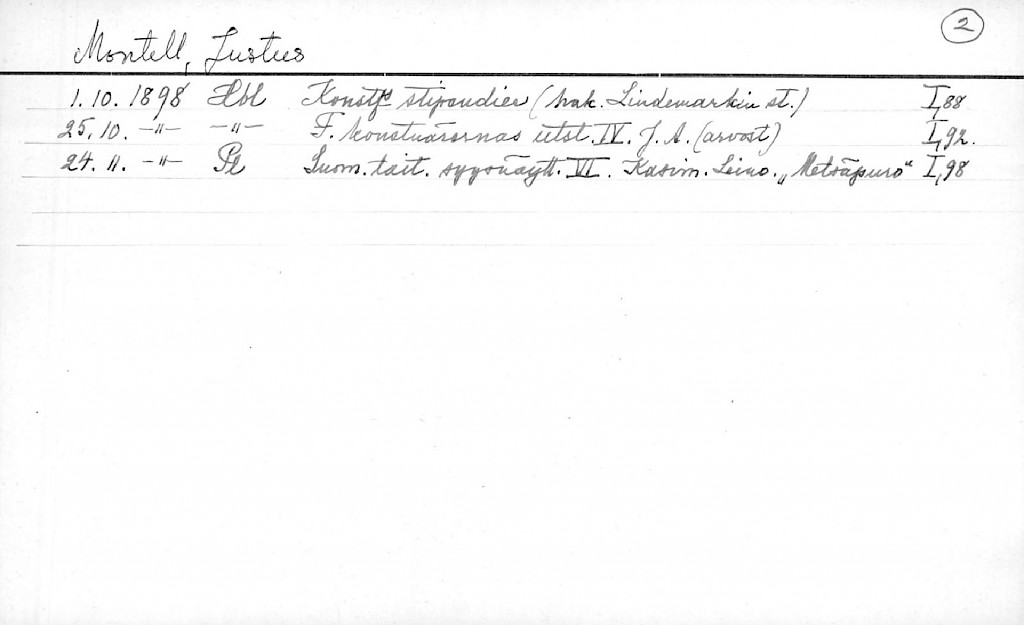 2
Montell, Justus
1.10. 1898 Hbl Konstf:s stipendier (hak. Lindemarkin st.) I,88
25.10. -"- -"- F. konstnärernas utst. IV. J. A. (arvost) I,92.
24. 11. -"- Pl Suom. tait. syysnäytt. VI. Kasim. Leino. „Metsäpuro" I,98